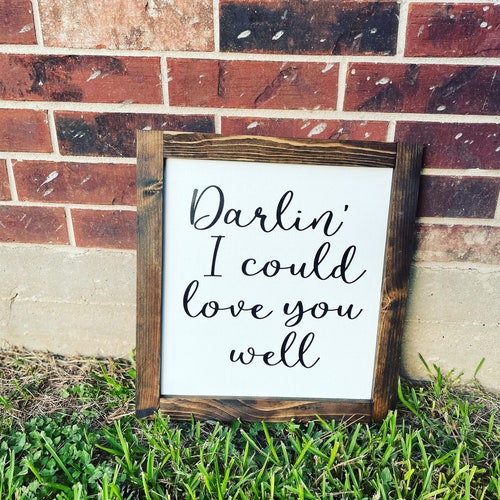 Darlin'
I could
love you
well